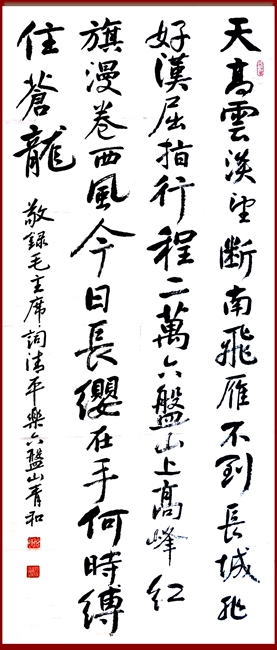 天高雲淡望斷南飛雁不到長城非
好漢屈指行程二萬六盤山上高峰紅
旗漫卷西風今日長纓在手何時縛
住蒼龍
敬録毛主席詞清平樂六盤山青和